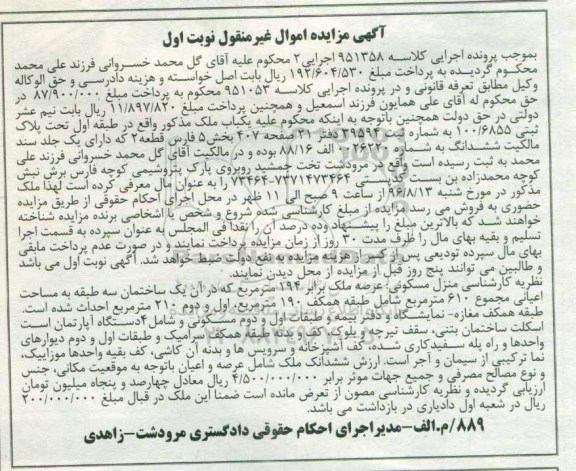 آگهی مزایده اموال غیرمنقول نوبت اول
بموجب پرونده اجرایی کلاسه ۹۵۱۳۵۸ اجرایی۲ محکوم علیه آقای گل محمد خسروانی فرزند علی محمد
محکوم گردیده به پرداخت مبلغ ۱۹۲/۶۰۴/۵۳۰ ریال بابت اصل خواسته و هزینه دادرسی و حق الوکاله
وکیل مطابق تعرفه قانونی و در پرونده اجرایی کلاسه ۹۵۱۰۵۳ محکوم به پرداخت مبلغ ۸۷/۹۰۰/۰۰۰ در
حق محکوم له آقای علی همایون فرزند اسمعیل و همچنین پرداخت مبلغ ۱۱/۸۹۷/۸۲۰ ریال بابت نیم عشر
دولتی در حق دولت همچنین باتوجه به اینکه محکوم علیه یکباب ملک مذکور واقع در طبقه اول تحت پلاک
ثبتی ۱۰۰/۶۸۵۵ به شماره ثبت ۲۹۵۹۴ دفتر ۲۱ صفحه ۴۰۷ بخش۵ فارس قطعه۲ که دارای یک جلد سند
مالکیت ششدانگ به شماره ۰۲۶۲۲۰ الف ۸۸/۱۶ بوده و در مالکیت آقای گل محمد خسروانی فرزند علی
محمد به ثبت رسیده است واقع در مرودشت تخت جمشید روبروی پارک پتروشیمی کوچه فارس برش نبش
کوچه محمدزاده بن بست کدپستی ۷۳۷۱۴۷۳۴۶۴-۷۳۴۶۴ را به عنوان مال معرفی کرده است لهذا ملک
مذکور در مورخ شنبه ۹۶/۸/۱۳ از ساعت ۹ صبح الی ۱۱ ظهر در محل اجرای احکام حقوقی از طریق مزایده
حضوری به فروش می رسد مزایده از مبلغ کارشناسی شده شروع و شخص یا اشخاصی برنده مزایده شناخته
خواهند شد که بالاترین مبلغ را پیشنهاد وده درصد آن را نقدا فی المجلس به عنوان سپرده به قسمت اجرا
تسلیم و بقیه بهای مال را ظرف مدت ۳۰ روز از زمان مزایده پرداخت نمایند و در صورت عدم پرداخت مابقی
بهای مال سپرده تودیعی پس از کسر از هزینه مزایده به نفع دولت ضبط خواهد شد. آگهی نوبت اول می باشد
و طالبین می توانند پنج روز قبل از مزایده از محل دیدن نمایند.
نظریه کارشناسی منزل مسکونی: عرصه ملک برابر ۱۹۴ مترمربع که در آن یک ساختمان سه طبقه به مساحت
اعیانی مجموع ۶۱۰ مترمربع شامل طبقه همکف ۱۹۰ مترمربع، اول و دوم ۲۱۰ مترمربع احداث شده است.
طبقه همکف مغازه- نمایشگاه و دفتر بیمه و طبقات اول و دوم مسکونی و شامل۴دستگاه آپارتمان است
اسکلت ساختمان بتنی، سقف تیرچه و بلوک، کف و بدنه طبقه همکف سرامیک و طبقات اول و دوم دیوارهای
واحدها و راه پله سفیدکاری شده، کف آشپزخانه و سرویس ها و بدنه آن کاشی، کف بقیه واحدها موزاییک،
نما ترکیبی از سیمان و آجر است. ارزش ششدانگ ملک شامل عرصه و اعیان باتوجه به موقعیت مکانی، جنس
و نوع مصالح مصرفی و جمیع جهات موثر برابر ۴/۵۰۰/۰۰۰/۰۰۰ ریال معادل چهارصد و پنجاه میلیون تومان
ارزیابی گردیده و نظریه کارشناسی مصون از تعرض مانده است ضمنا این ملک در قبال مبلغ ۲۰۰/۰۰۰/۰۰۰
ریال در شعبه اول دادیاری در بازداشت می باشد.
۸۸۹/م.الف-مدیراجرای احکام حقوقی دادگستری مرودشت-زاهدی